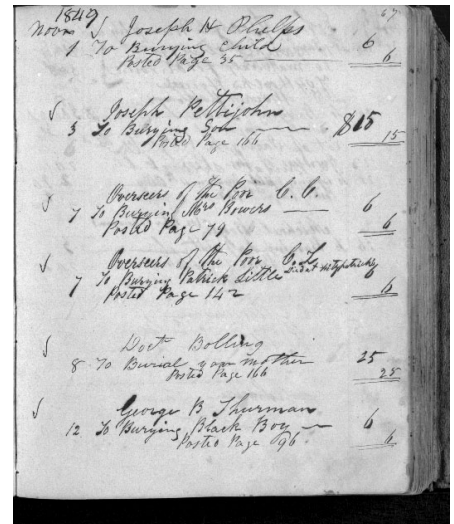 1849 67
Novr Joseph H Phelps
1 To Burying Child 6
Posted Page 35 6
Joseph Pettijohn
3 To Burying Son $15
Posted Page 166 15
Overseers of the Poor C. C.
7 To Burying Mrs Bowers 6
Posted Page 79 6
Overseers of the Poor
7 To Burying Patrick Little 6
Posted Page 142 6
Doct Bolling
8 To Burial your mother 25
Posted Page 166 25
George B Thurman
12 To Burying Black Boy 6
Posted Page 96. 6